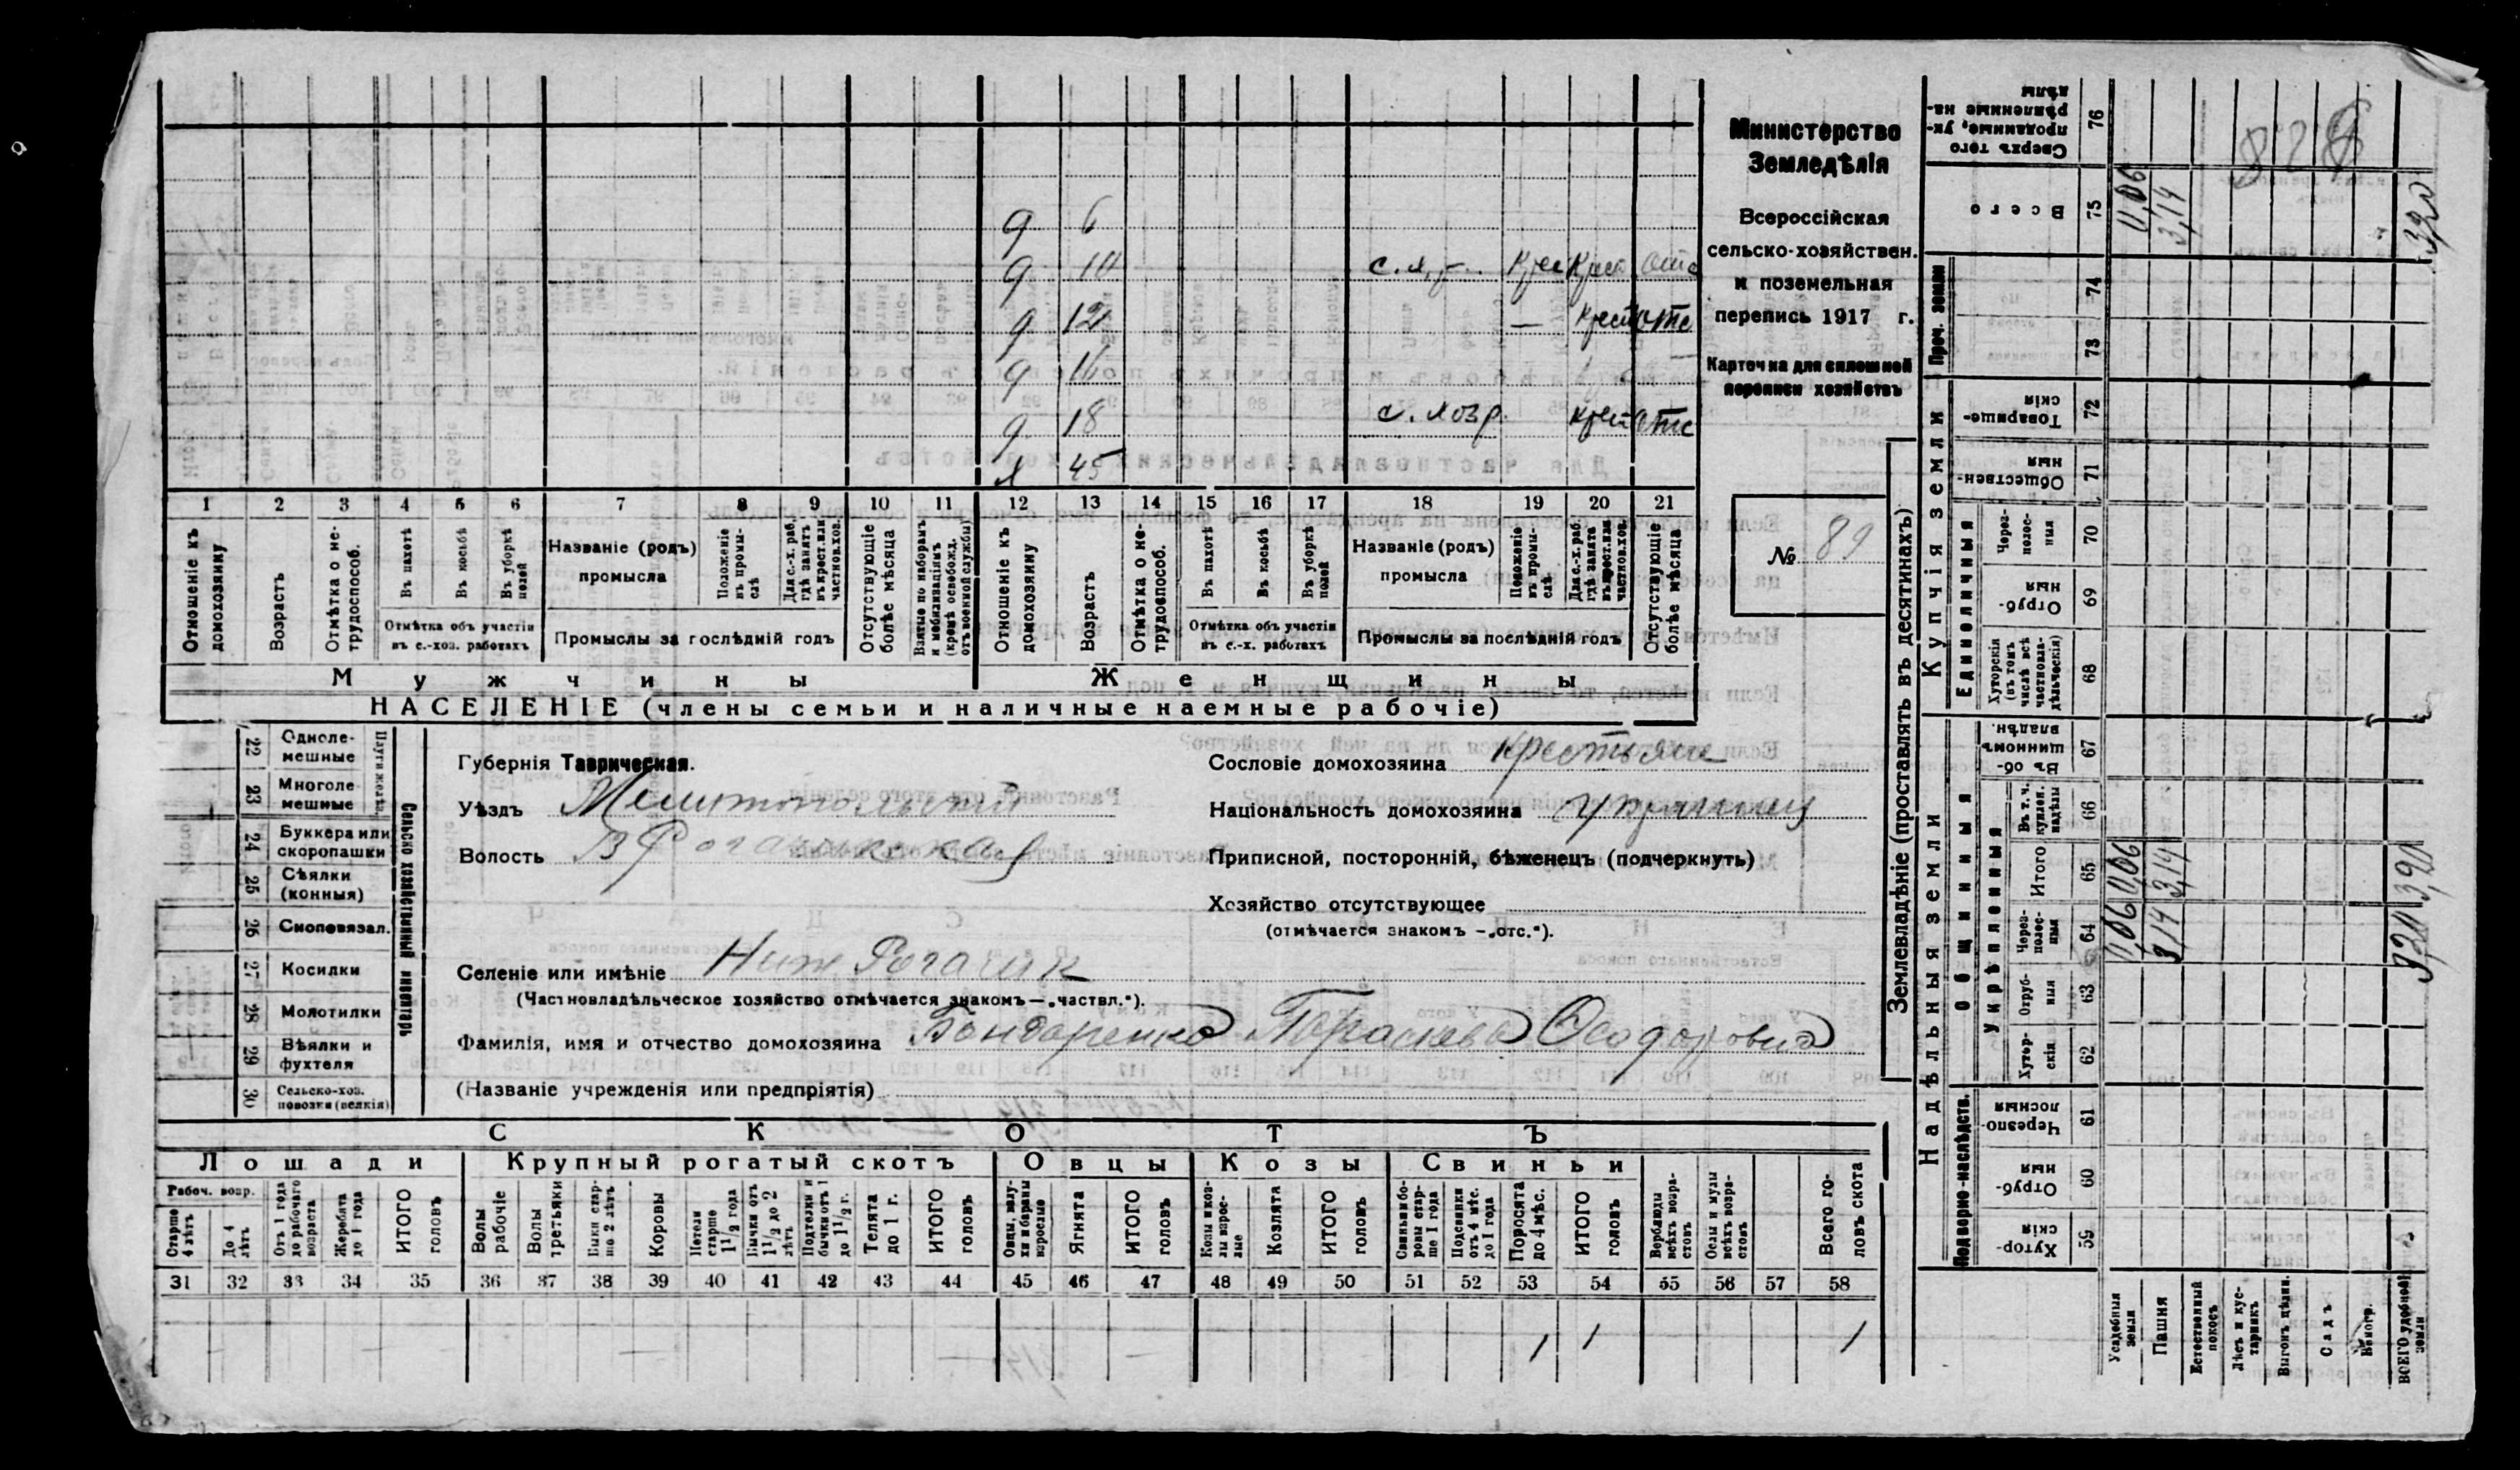 Министерство
Земледѣлія
Всероссійская
сельско-хозяйствен.
и поземельная
перепись 1917 г.
Карточка для сплошной
переписи хозяйствъ
№ 89
д 6
д 10 с. х. Крес Крест отс
д 12 — Крест отс
д 16
д 18 с. хозр. Крест отс
х 45
1 2 3 4 5 6 7 8 9 10 11 12 13 14 15 16 17 18 19 20 21
Отношеніе къ домохозяину
Возрастъ
Отмѣтка о нетрудоспособ.
Въ пахотѣ
Въ косьбѣ
Въ уборкѣ полей
Отмѣтка объ участіи
въ с.-хоз. работахъ
Названіе (родъ)
промысла
Положеніе въ промыслѣ
Для с.-х. раб. гдѣ занятъ въ крест. или частнов. хоз.
Промыслы за послѣдній годъ
Отсутствующіе болѣе мѣсяца
Взятые по наборамъ и мобилизаціямъ (кромѣ освобожд. отъ военной службы)
Отношеніе къ домохозяину
Возрастъ
Отмѣтка о нетрудоспособ.
Въ пахотѣ
Въ косьбѣ
Въ уборкѣ полей
Отмѣтка объ участіи
въ с.-х. работахъ
Названіе (родъ)
промысла
Положеніе въ промыслѣ
Для с.-х. раб. гдѣ занята въ крест. или частнов. хоз.
Промыслы за послѣдній годъ
Отсутствующіе болѣе мѣсяца
Мужчины Женщины
НАСЕЛЕНІЕ (члены семьи и наличные наемные рабочіе)
Сельско хозяйственный инвентарь
22 Однолемешные
23 Многолемешные
24 Буккера или скоропашки
25 Сѣялки (конныя)
26 Сноповязал.
27 Косилки
28 Молотилки
29 Вѣялки и фухтеля
30 Сельско-хоз. повозки (всякія)
Губернія Таврическая.
Уѣздъ Мелитопольский
Волость В Рогачикская
Селеніе или имѣніе Ниж Рогачик
(Частновладѣльческое хозяйство отмѣчается знакомъ — „частвл.“).
Фамилія, имя и отчество домохозяина Бондаренко Герасиева Феодоровна
(Названіе учрежденія или предпріятія)
Сословіе домохозяина крестьяне
Національность домохозяина украинец
Приписной, посторонній, бѣженецъ (подчеркнуть)
Хозяйство отсутствующее
(отмѣчается знакомъ — „отс.“).
СКОТЪ
Лошади Крупный рогатый скотъ Овцы Козы Свиньи
Рабоч. возр.
Старше 4 лѣтъ
До 4 лѣтъ
Отъ 1 года до рабочаго возраста
Жеребята до 1 года
ИТОГО головъ
Волы рабочіе
Волы третьяки
Быки старше 2 лѣтъ
Коровы
Нетели старше 1 1/2 года
Бычки отъ 1 1/2 до 2 лѣтъ
Подтелки и бычки отъ 1 до 1 1/2 г.
Телята до 1 г.
ИТОГО головъ
Овцы, валухи и бараны взрослые
Ягнята
ИТОГО головъ
Козы и козлы взрослые
Козлята
ИТОГО головъ
Свиньи и боровы старше 1 года
Подсвинки отъ 4 мѣс. до 1 года
Поросята до 4 мѣс.
ИТОГО головъ
Верблюды всѣхъ возрастовъ
Ослы и мулы всѣхъ возрастовъ
Всего головъ скота
31 32 33 34 35 36 37 38 39 40 41 42 43 44 45 46 47 48 49 50 51 52 53 54 55 56 57 58
1 1 1
Землевладѣніе (проставлять въ десятинахъ)
Надѣльныя земли
Купчія земли
Проч. земли
Подворно-наслѣдств.
Общинныя
Укрѣпленныя
Единоличныя
59 Хуторскія
60 Отрубныя
61 Черезполосныя
62 Хуторскія
63 Отрубныя
64 Черезполосныя
65 Итого
66 Въ т. ч. куплен. надѣлы
67 Въ общинномъ владѣн.
68 Хуторскія (въ томъ числѣ всѣ частновладѣльческія)
69 Отрубныя
70 Черезполосныя
71 Общественныя
72 Товарищескія
73
74
75 Всего
76 Сверхъ того проданные, укрѣпленные надѣлы
Усадебныя земли 0,06 0,06 0,06
Пашня 3,14 3,14 3,14
Естественный покосъ
Лѣсъ и кустарникъ
Выгонъ цѣлин.
Садъ
Виногр.
ВСЕГО удобной земли 3,20 3,20 3,20